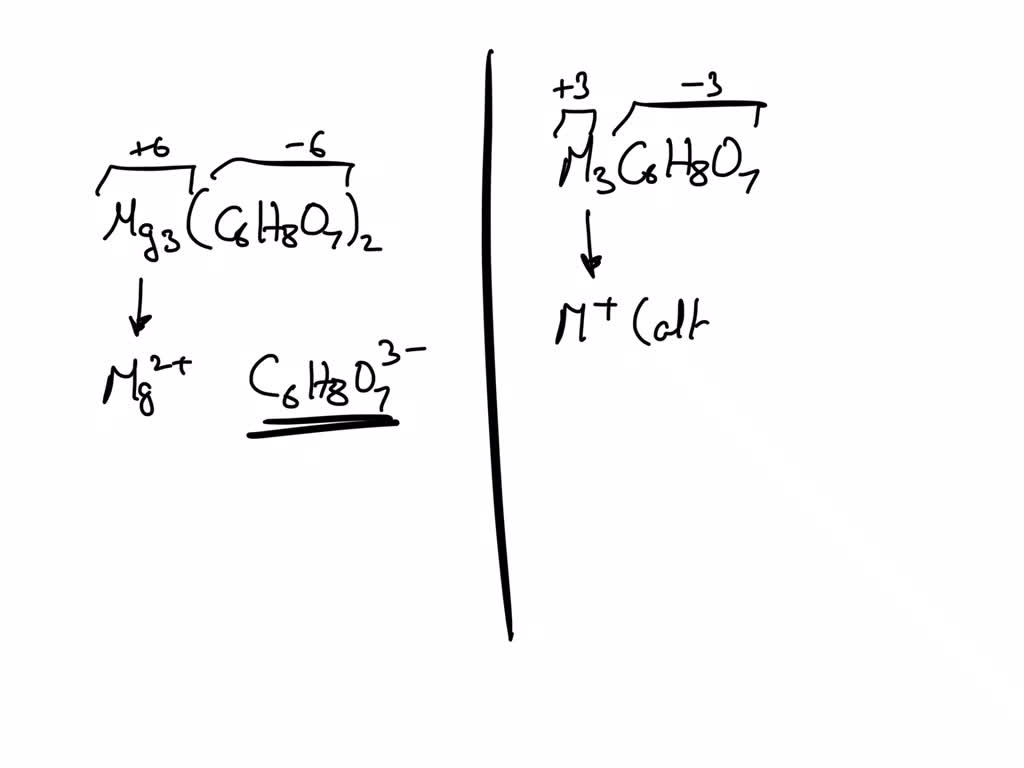 +6 -6
Mg₃(C₆H₈O₇)₂
Mg²⁺ C₆H₈O₇³⁻
+3 -3
M₃C₆H₈O₇
M⁺ (alk